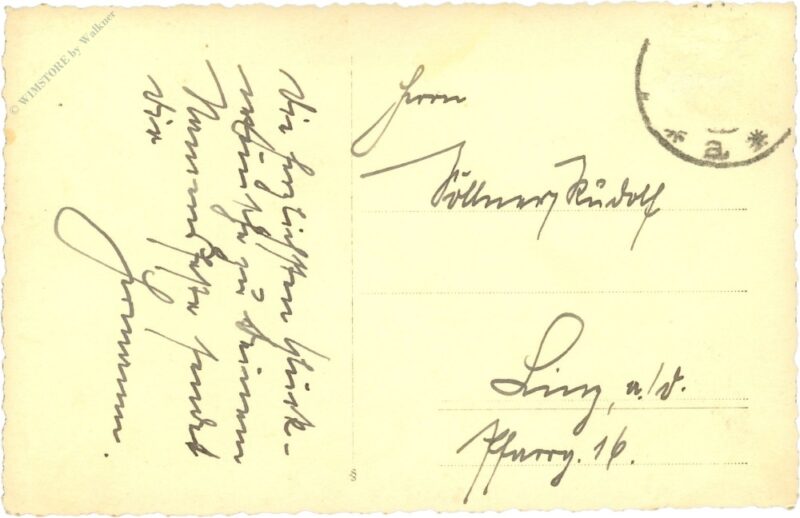 © W1MSTORE by Walkner
Die herzlichsten Glück-
wünsche zu Deinem
Namensfeste sendet
Dir
Hermann.
Herrn
Söllner Rudolf
Linz, a/D.
Pfarrg. 16.
a